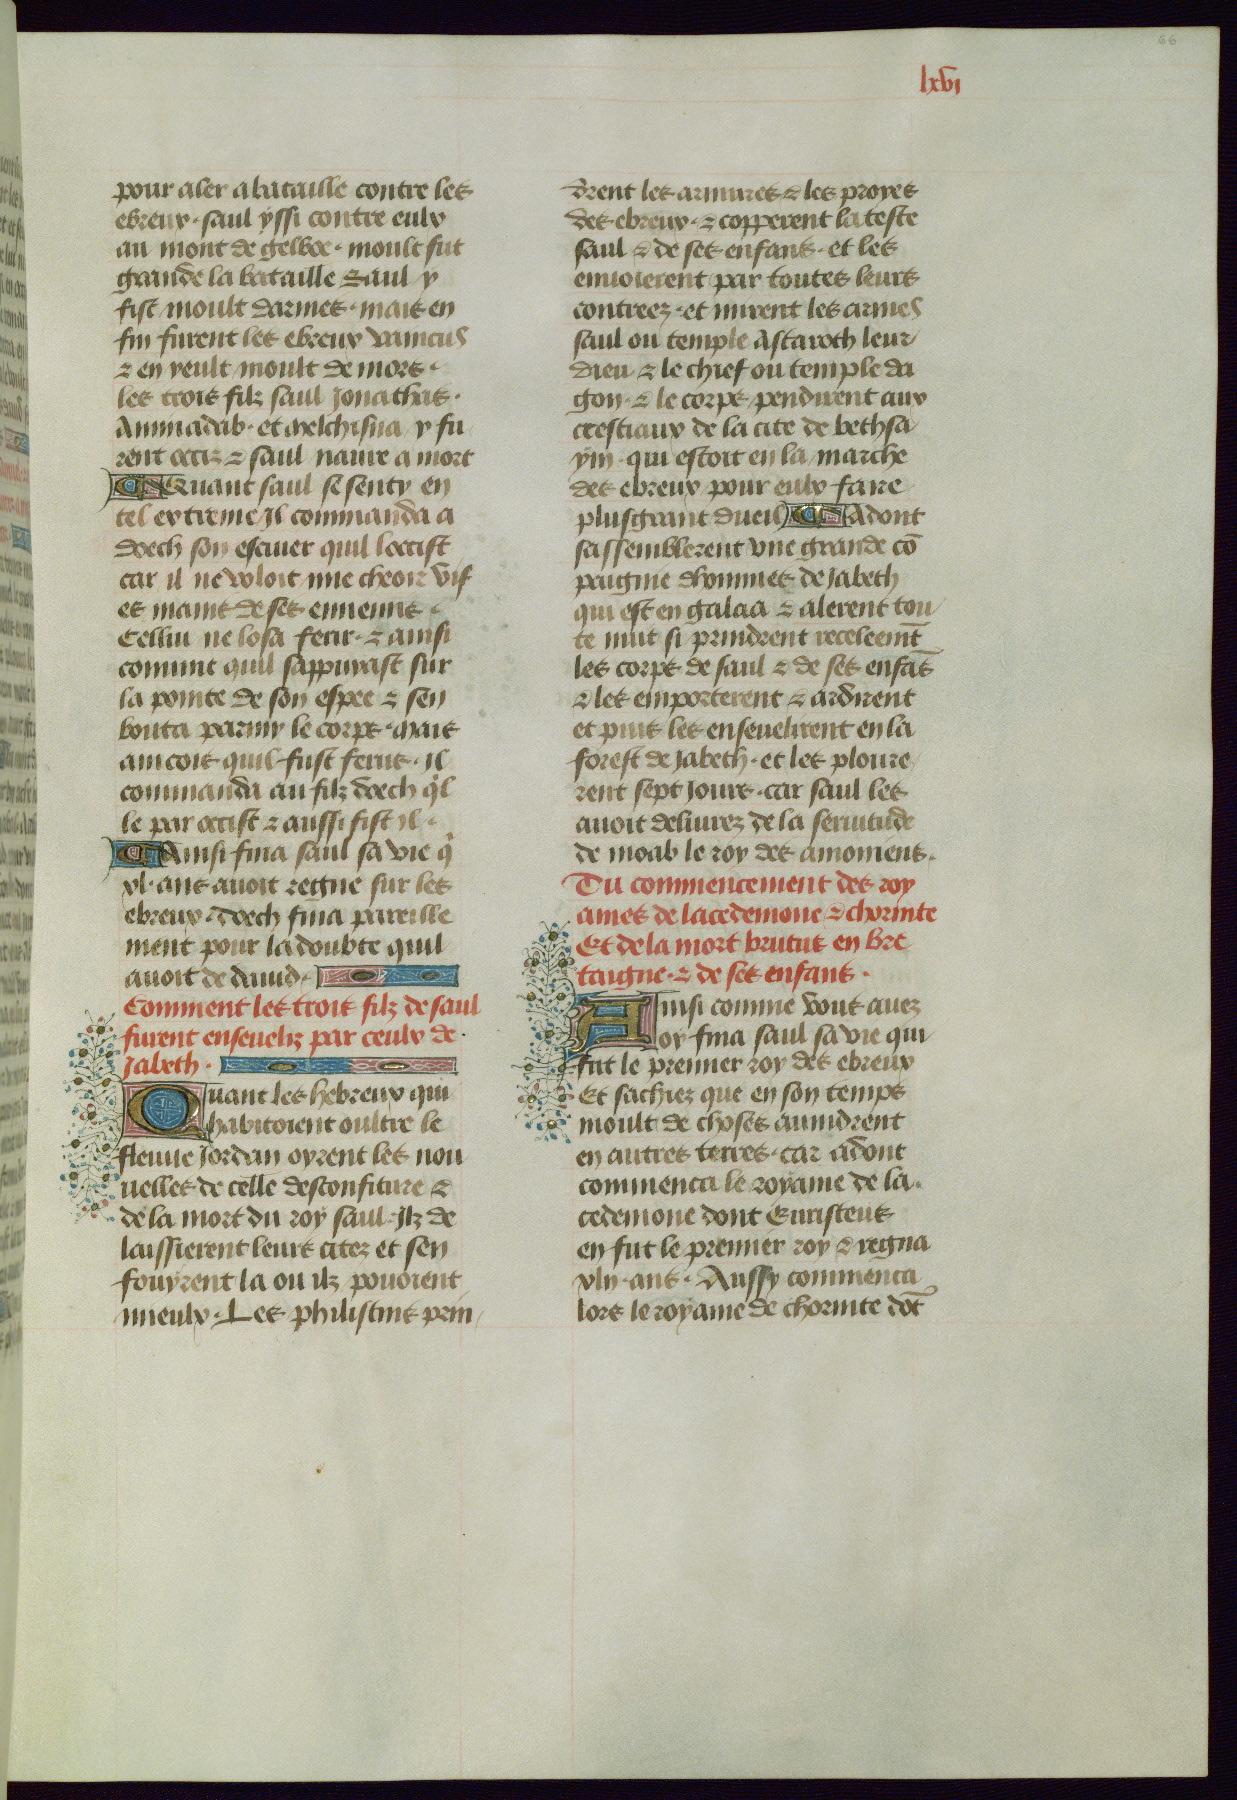 66
lxvi
pour aler a bataille contre les
ebreux · saul yssi contre eulx
au mont de gelboe · moult fut
grande la bataille Saul y
fist moult darmes · mais en
fin furent les ebreux vaincus
⁊ en y eult moult de mors ·
les trois filz saul Jonathas ·
Aminadab · et Melchisua y fu
rent occiz ⁊ saul naure a mort
Quant saul se senty en
tel extreme Il commanda a
doech son escuier quil loccist
car il ne voloit mie cheoir vif
es mains de ses ennemis ·
Celluy ne losa ferir · ⁊ ainsi
comme quil sappuyast sur
la pointe de son espee ⁊ sen
bouta parmy le corps · Mais
aincois quil fust ferus · il
commanda au filz doech q̓l
le par occist ⁊ aussi fist il ·
Ainsi fina saul sa vie q̓
xl · ans auoit regne sur les
ebreux · doech fina pareille
ment pour la doubte quil
auoit de dauid ·
Comment les trois filz de saul
furent enseueliz par ceulx de ·
Jabeth ·
Quant les hebreux qui
habitoient oultre le
fleuue Jordan oyrent les nou
uelles de celle desconfiture ⁊
de la mort du roy saul · Ilz de
laissierent leurs citez et sen
fouyrent la ou ilz pouoient
mieulx · Les philistins prin
drent les armures ⁊ les proyes
des ebreux · ⁊ copperent la teste
saul ⁊ de ses enfans · et les
enuoierent par toutes leurs
contreez · et mirent les armes
saul ou temple Astaroth leur
dieu ⁊ le chief ou temple da
gon · ⁊ le corps pendirent aux
crestiaux de la cite de bethsa
ym · qui estoit en la marche
des ebreux pour eulx faire
plusgrant dueil Adont
sassemblerent vne grande cō
paignie dhommes de Jabeth
qui est en galaa ⁊ alerent tou
te nuit si prindrent receleemt̄
les corps de saul ⁊ de ses enfās
⁊ les emporterent ⁊ ardirent
et puis les enseuelirent en la
forest de Jabeth · et les ploure
rent sept Jours · car saul les
auoit deliurez de la seruitude
de moab le roy des amoniens ·
Du commencement des roy
ames de lacedemone ⁊ chorinte
Et de la mort brutus en bre
taigne · ⁊ de ses enfans ·
Ainsi comme vous auez
oy fina saul sa vie qui
fut le premier roy des ebreux
Et sachiez que en son temps
moult de choses auindrent
en autres terres · car adont
commenca le royame de la ·
cedemone dont Euristeus
en fut le premier roy ⁊ regna
xlij · ans · Aussy commenca
lors le royame de chorinte dōt